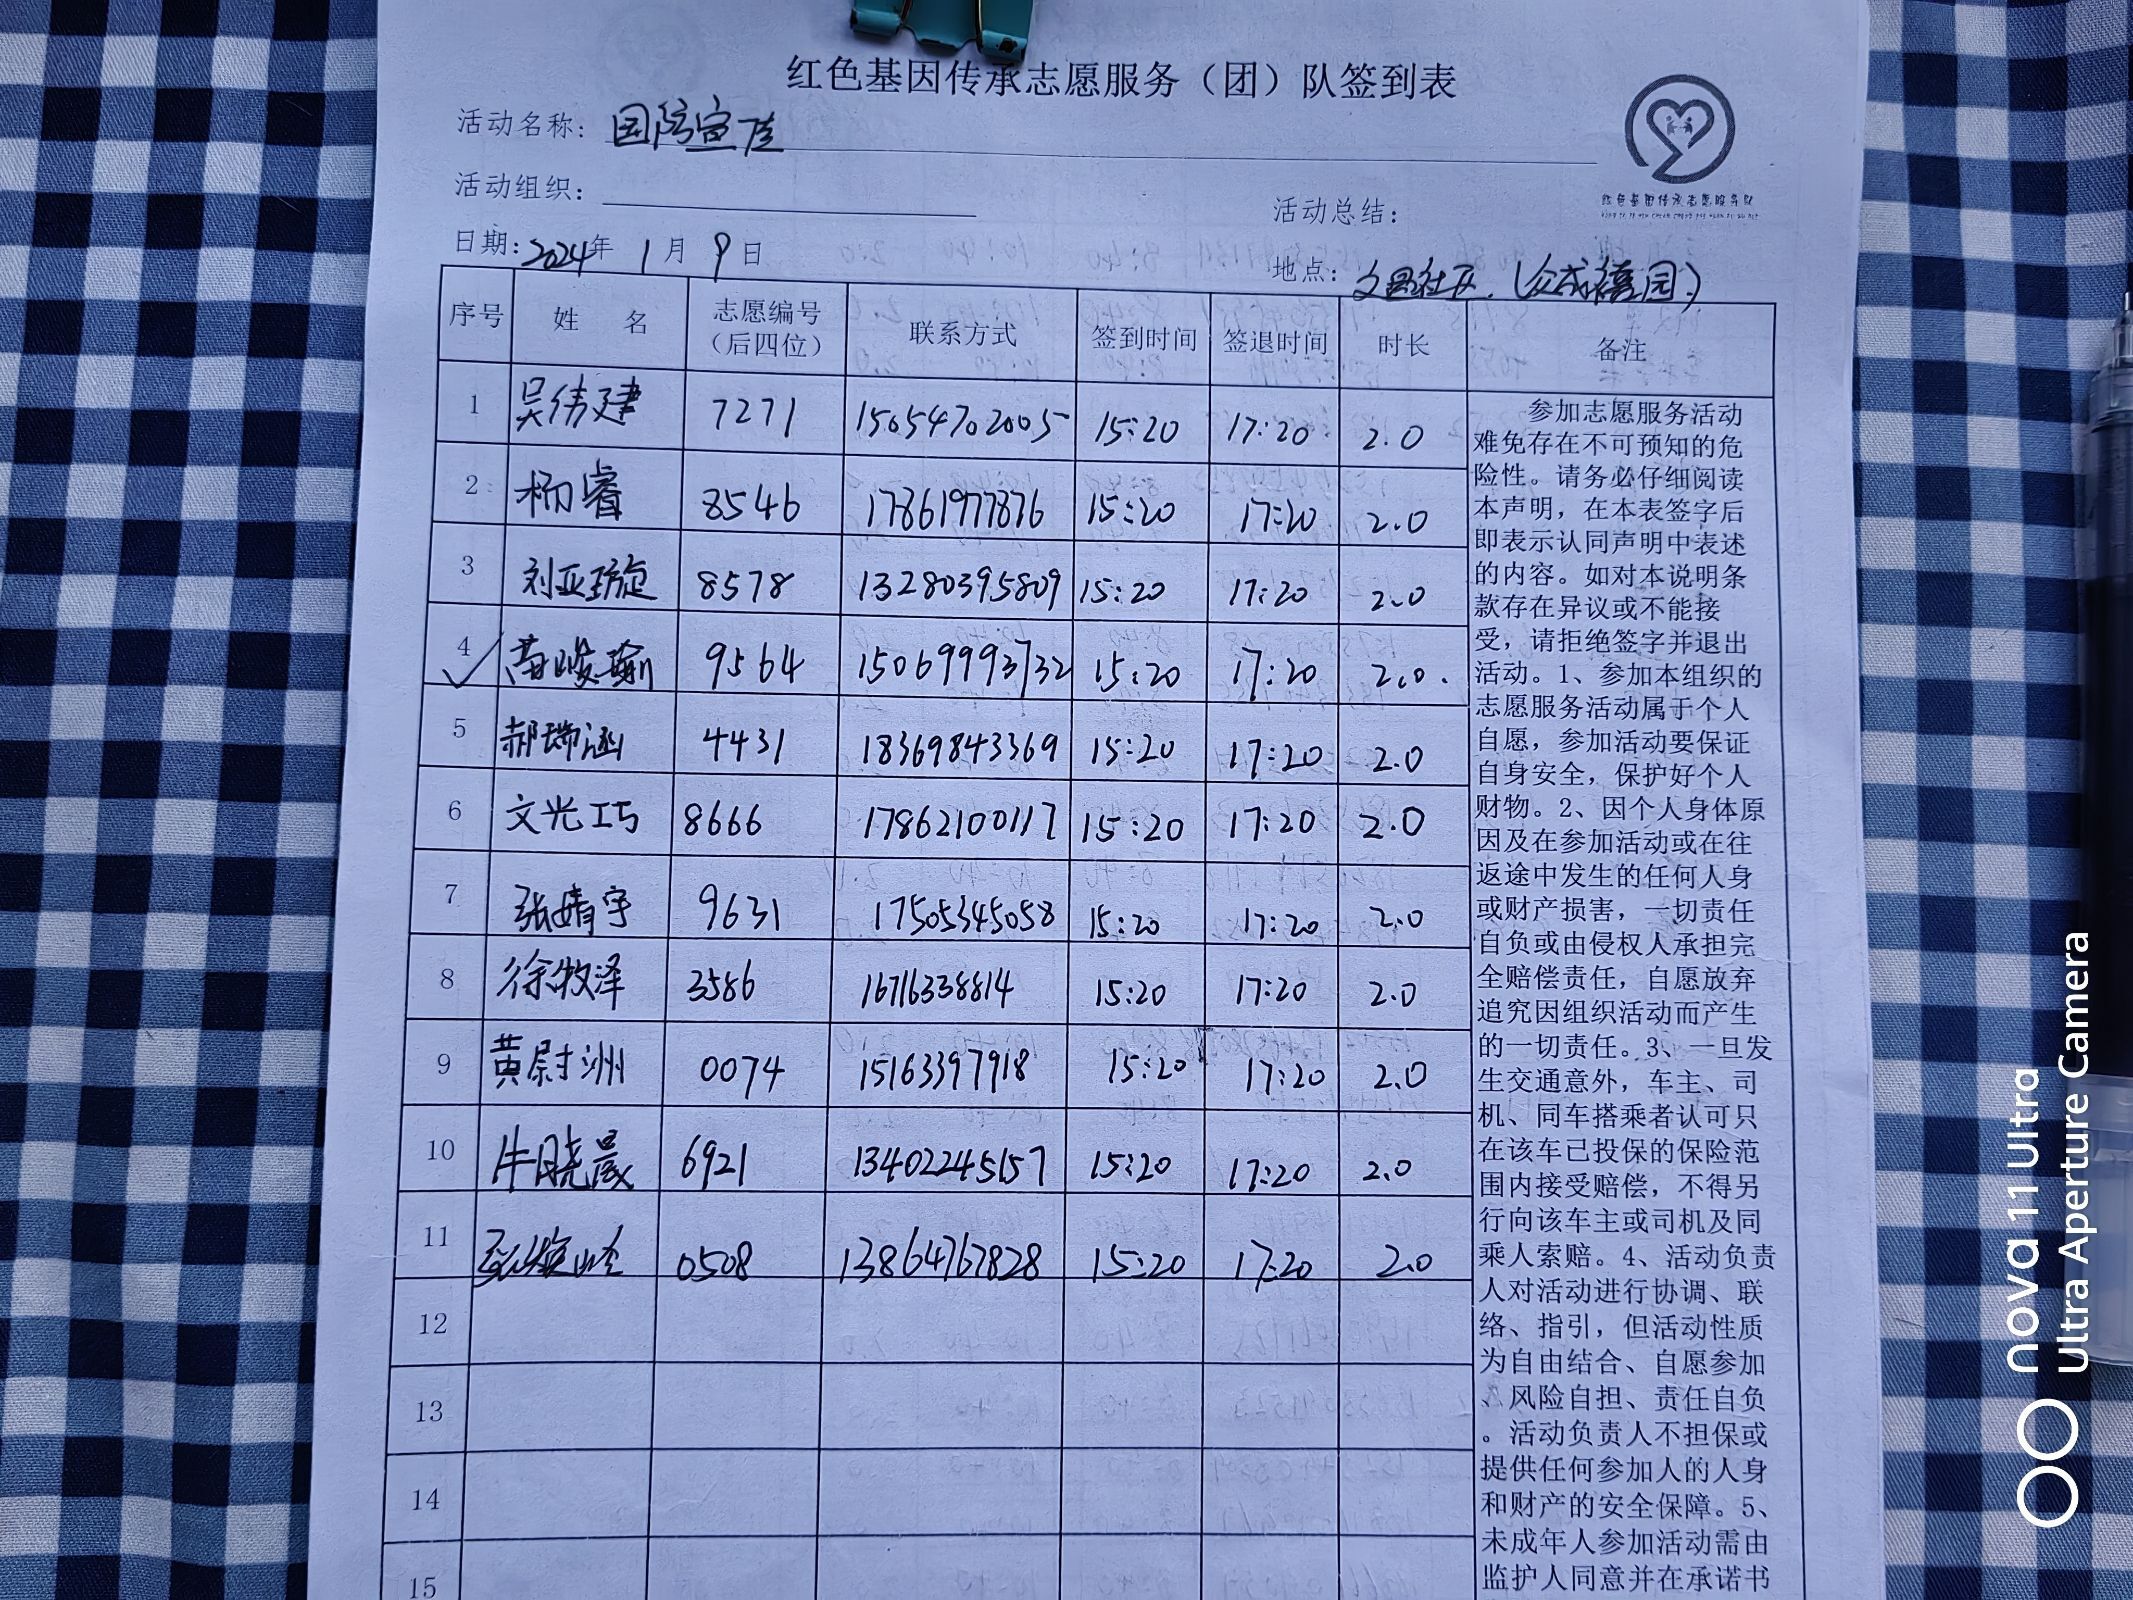 红色基因传承志愿服务（团）队签到表
活动名称：国防宣传
活动组织：
活动总结：
红色基因传承志愿服务队
日期：2024年 1月 9日
地点：文昌社区.（众成禧园）
序号 姓 名 志愿编号（后四位） 联系方式 签到时间 签退时间 时长 备注
1 吴伟建 7271 15654702005 15:20 17:20 2.0
2 杨睿 8546 17861977876 15:20 17:20 2.0
3 刘亚璇 8578 13280395809 15:20 17:20 2.0
4 黄峻瑜 9564 15069993732 15:20 17:20 2.0.
5 郝瑞涵 4431 18369843369 15:20 17:20 2.0
6 文光巧 8666 17862100117 15:20 17:20 2.0
7 张婧宇 9631 17505345058 15:20 17:20 2.0
8 徐牧泽 3586 16716338814 15:20 17:20 2.0
9 黄尉洲 0074 15163397918 15:20 17:20 2.0
10 牛晓晟 6921 13402245157 15:20 17:20 2.0
11 0508 13864767828 15:20 17:20 2.0
12
13
14
15
参加志愿服务活动
难免存在不可预知的危
险性。请务必仔细阅读
本声明，在本表签字后
即表示认同声明中表述
的内容。如对本说明条
款存在异议或不能接
受，请拒绝签字并退出
活动。1、参加本组织的
志愿服务活动属于个人
自愿，参加活动要保证
自身安全，保护好个人
财物。2、因个人身体原
因及在参加活动或在往
返途中发生的任何人身
或财产损害，一切责任
自负或由侵权人承担完
全赔偿责任，自愿放弃
追究因组织活动而产生
的一切责任。3、一旦发
生交通意外，车主、司
机、同车搭乘者认可只
在该车已投保的保险范
围内接受赔偿，不得另
行向该车主或司机及同
乘人索赔。4、活动负责
人对活动进行协调、联
络、指引，但活动性质
为自由结合、自愿参加
、风险自担、责任自负
。活动负责人不担保或
提供任何参加人的人身
和财产的安全保障。5、
未成年人参加活动需由
监护人同意并在承诺书
nova 11 Ultra
Ultra Aperture Camera